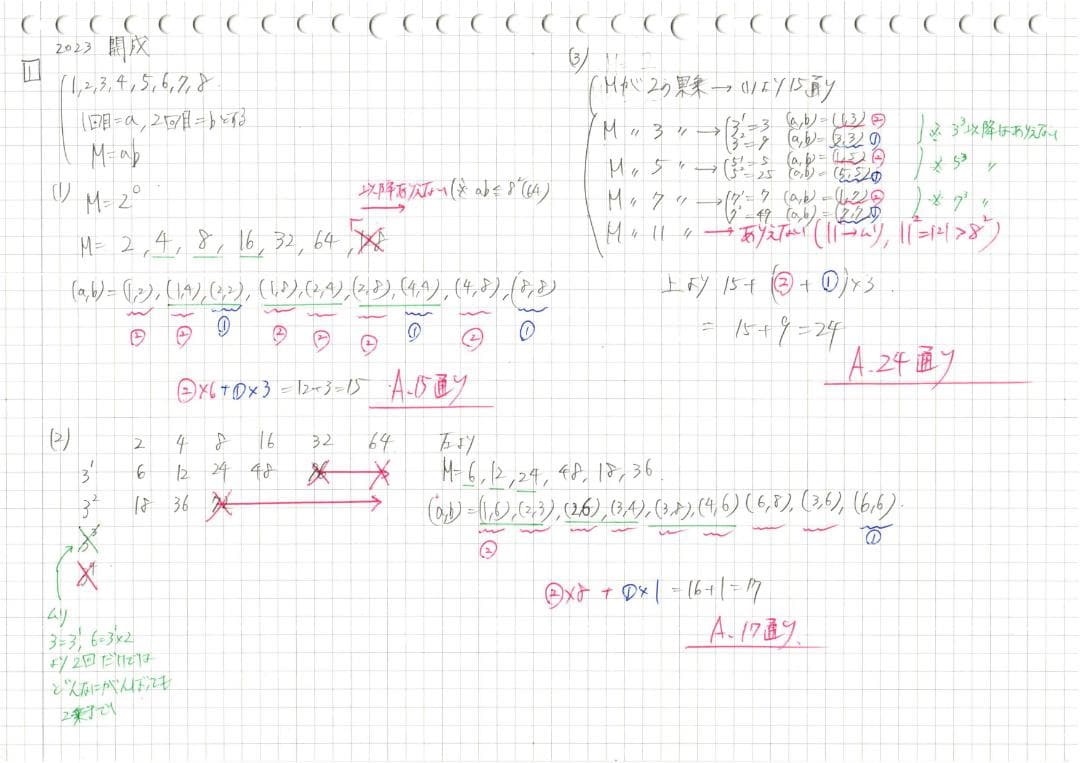 2023 開成
1
1,2,3,4,5,6,7,8
1回目=a, 2回目=bとする
M=ab
(1) M=2^○
以降ありえない(※ ab≦8²(64)
M= 2, 4, 8, 16, 32, 64, 128
(a,b)=(1,2), (1,4), (2,2), (1,8), (2,4), (2,8), (4,4), (4,8), (8,8)
② ② ① ② ② ② ① ② ①
②×6+①×3=12+3=15 A. 15通り
(2) 2 4 8 16 32 64
3¹ 6 12 24 48
3² 18 36 72
3³
3⁴
ムリ
3=3¹, 6=3¹×2
より2回だけでは
どんなにがんばっても
2乗まで
左より
M=6, 12, 24, 48, 18, 36
(a,b)=(1,6), (2,3), (2,6), (3,4), (3,8), (4,6) (6,8), (3,6), (6,6)
② ①
②×8 + ①×1 =16+1=17
A. 17通り
(3)
Mが2の累乗→(1)より15通り
M 〃 3 〃 → 3¹=3 (a,b)=(1,3)②
3²=9 (a,b)=(3,3)① ※ 3³以降はありえない
M 〃 5 〃 → 5¹=5 (a,b)=(1,5)②
5²=25 (a,b)=(5,5)① ※ 5³ 〃
M 〃 7 〃 → 7¹=7 (a,b)=(1,7)②
7²=49 (a,b)=(7,7)① ※ 7³ 〃
M 〃 11 〃 → ありえない(11→ムリ, 11²=121>8²)
上より 15+(②+①)×3
= 15+9=24
A. 24通り